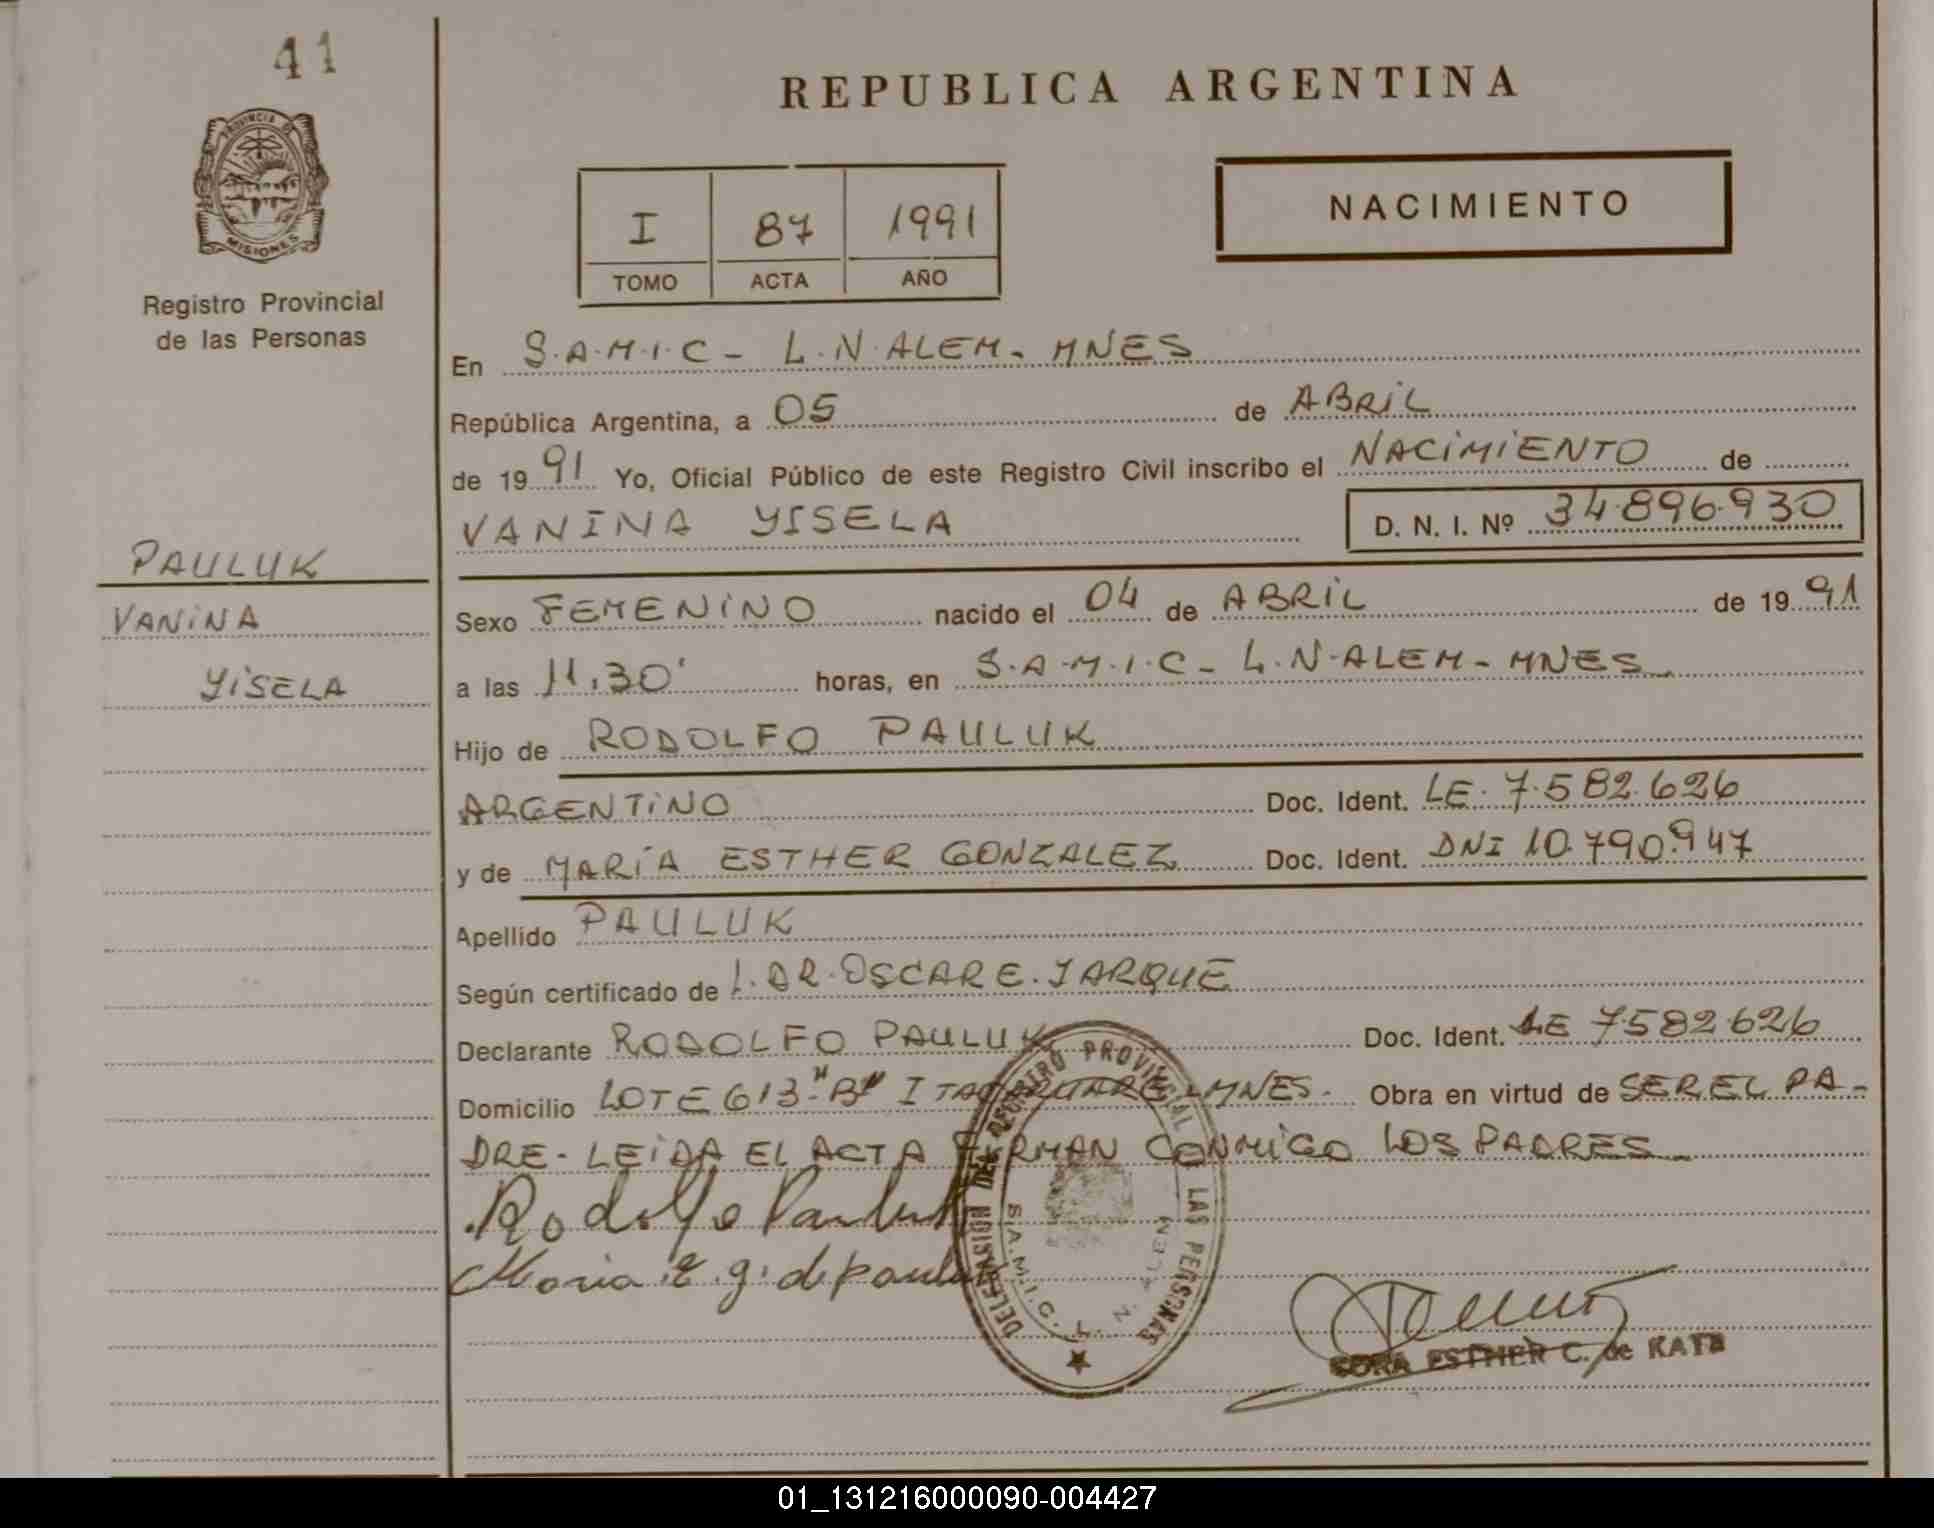 41
PROVINCIA DE
MISIONES
Registro Provincial
de las Personas
PAULUK
VANINA
YISELA
REPUBLICA ARGENTINA
I 87 1991
TOMO ACTA AÑO
NACIMIENTO
En S.A.M.I.C - L.N.ALEM - MNES
República Argentina, a 05 de ABRIL
de 19 91 Yo, Oficial Público de este Registro Civil inscribo el NACIMIENTO de
VANINA YISELA D. N. I. Nº 34.896.930
Sexo FEMENINO nacido el 04 de ABRIL de 19 91
a las 11,30' horas, en S.A.M.I.C - L.N.ALEM - MNES
Hijo de RODOLFO PAULUK
ARGENTINO Doc. Ident. LE. 7.582.626
y de MARÍA ESTHER GONZALEZ Doc. Ident. DNI 10.790.947
Apellido PAULUK
Según certificado de DR. OSCAR E. JARQUE
Declarante RODOLFO PAULUK Doc. Ident. LE 7582.626
Domicilio LOTE 613 "B" ITACARUARE - MNES. Obra en virtud de SER EL PA-
DRE - LEIDA EL ACTA FIRMAN CONMIGO LOS PADRES
Rodolfo Pauluk
Maria E. g. de pauluk
DELEGACION DEL REGISTRO PROVINCIAL DE LAS PERSONAS
S.A.M.I.C. L. N. ALEM
ESTHER C. de KATZ
01_131216000090-004427